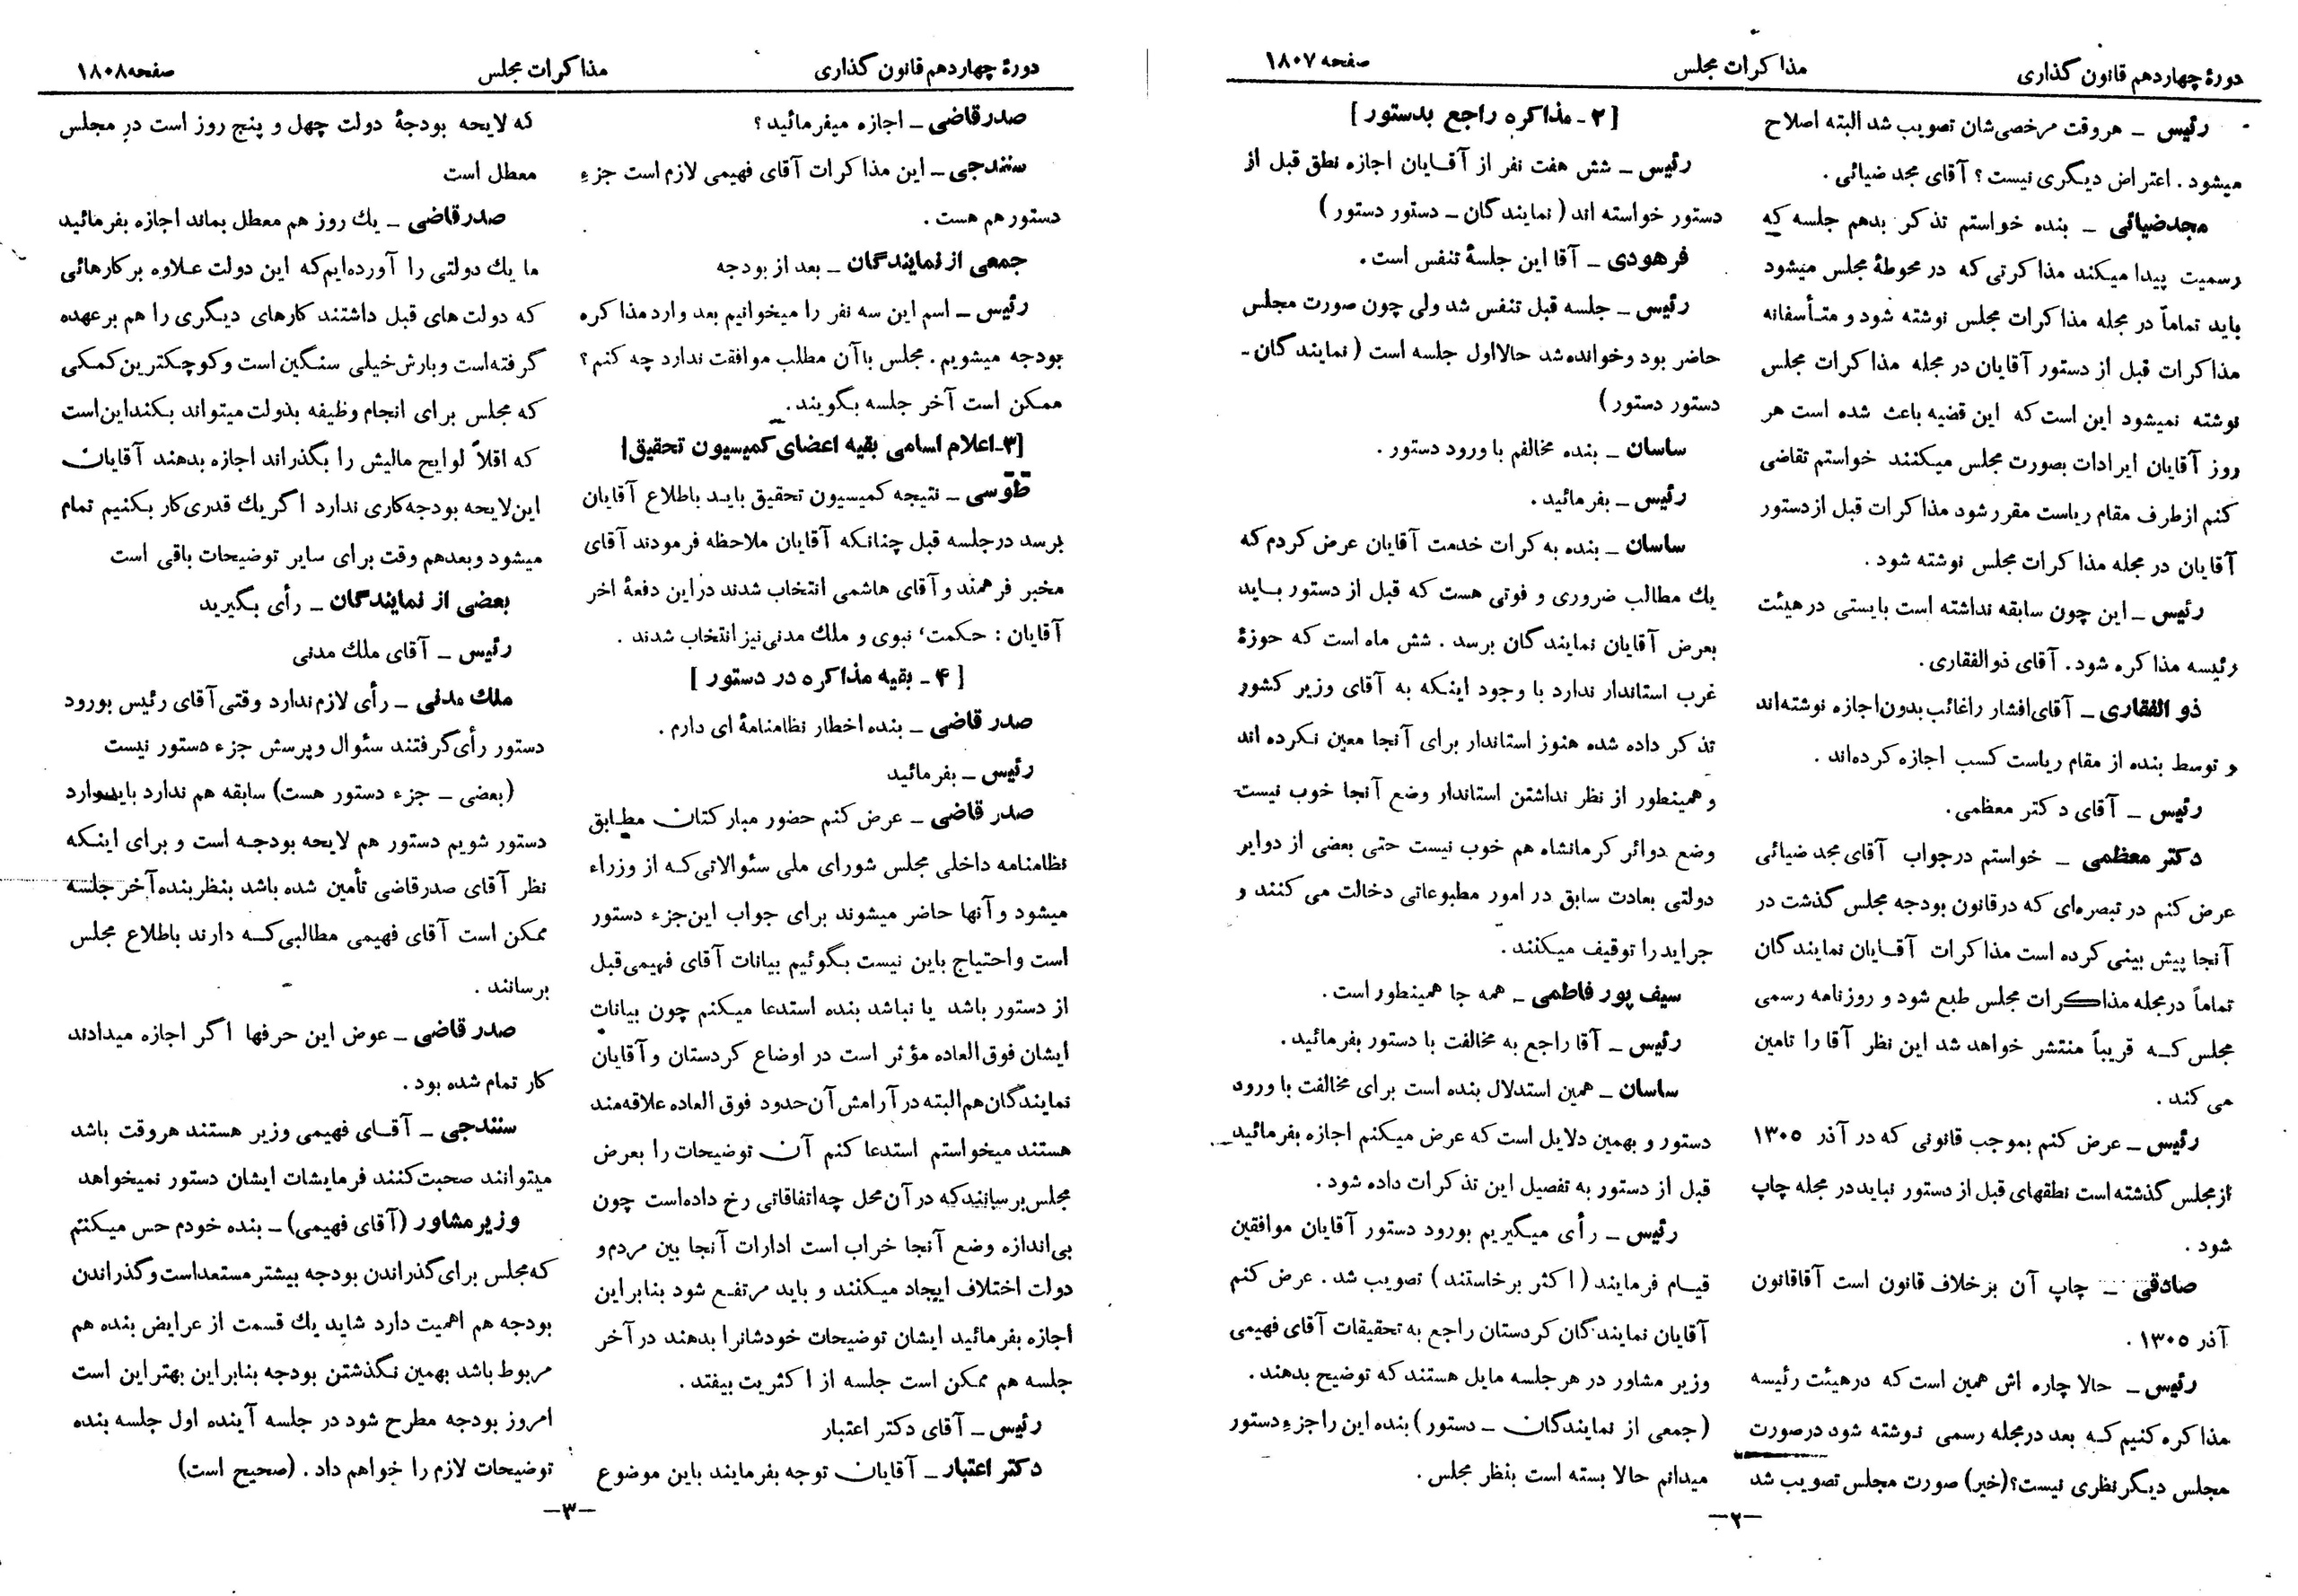 دورهٔ چهاردهم قانون گذاری
مذاکرات مجلس
صفحه ۱۸۰۷
رئیس ــ هروقت مرخصی‌شان تصویب شد البته اصلاح
میشود . اعتراض دیگری نیست ؟ آقای مجد ضیائی .
مجدضیائی ــ بنده خواستم تذکر بدهم جلسه که
رسمیت پیدا میکند مذاکرتی که در محوطهٔ مجلس میشود
باید تماماً در مجله مذاکرات مجلس نوشته شود و متأسفانه
مذاکرات قبل از دستور آقایان در مجله مذاکرات مجلس
نوشته نمیشود این است که این قضیه باعث شده است هر
روز آقایان ایرادات بصورت مجلس میکنند خواستم تقاضی
کنم ازطرف مقام ریاست مقرر شود مذاکرات قبل ازدستور
آقایان در مجله مذاکرات مجلس نوشته شود .
رئیس ــ این چون سابقه نداشته است بایستی درهیئت
رئیسه مذاکره شود . آقای ذوالفقاری .
ذوالفقاری ــ آقای افشار راغائب بدون اجازه نوشته‌اند
و توسط بنده از مقام ریاست کسب اجازه کرده‌اند .
رئیس ــ آقای دکتر معظمی .
دکتر معظمی ــ خواستم درجواب آقای مجد ضیائی
عرض کنم در تبصره‌ای که درقانون بودجه مجلس گذشت در
آنجا پیش بینی کرده است مذاکرات آقایان نمایندگان
تماماً درمجله مذاکرات مجلس طبع شود و روزنامه رسمی
مجلس که قریباً منتشر خواهد شد این نظر آقا را تامین
می کند .
رئیس ــ عرض کنم بموجب قانونی که در آذر ۱۳۰۵
ازمجلس گذشته است نطقهای قبل از دستور نباید در مجله چاپ
شود .
صادقی ــ چاپ آن برخلاف قانون است آقاقانون
آذر ۱۳۰۵ .
رئیس ــ حالا چاره اش همین است که درهیئت رئیسه
مذاکره کنیم که بعد درمجله رسمی نوشته شود درصورت
مجلس دیگر نظری نیست؟(خیر) صورت مجلس تصویب شد
[ ۲ ـ مذاکره راجع بدستور ]
رئیس ــ شش هفت نفر از آقایان اجازه نطق قبل از
دستور خواسته اند ( نمایندگان ــ دستور دستور )
فرهودی ــ آقا این جلسهٔ تنفس است .
رئیس ــ جلسه قبل تنفس شد ولی چون صورت مجلس
حاضر بود و خوانده شد حالا اول جلسه است ( نمایندگان ـ
دستور دستور )
ساسان ــ بنده مخالفم با ورود دستور .
رئیس ــ بفرمائید .
ساسان ــ بنده به کرات خدمت آقایان عرض کردم که
یك مطالب ضروری و فوتی هست که قبل از دستور باید
بعرض آقایان نمایندگان برسد . شش ماه است که حوزهٔ
غرب استاندار ندارد با وجود اینکه به آقای وزیر کشور
تذکر داده شده هنوز استاندار برای آنجا معین نکرده اند
و همینطور از نظر نداشتن استاندار وضع آنجا خوب نیست
وضع دوائر کرمانشاه هم خوب نیست حتی بعضی از دوایر
دولتی بعادت سابق در امور مطبوعاتی دخالت می کنند و
جراید را توقیف میکنند .
سیف پور فاطمی ــ همه جا همینطور است .
رئیس ــ آقا راجع به مخالفت با دستور بفرمائید .
ساسان ــ همین استدلال بنده است برای مخالفت با ورود
دستور و بهمین دلایل است که عرض میکنم اجازه بفرمائید
قبل از دستور به تفصیل این تذکرات داده شود .
رئیس ــ رأی میگیریم بورود دستور آقایان موافقین
قیام فرمایند ( اکثر برخاستند ) تصویب شد . عرض کنم
آقایان نمایندگان کردستان راجع به تحقیقات آقای فهیمی
وزیر مشاور در هر جلسه مایل هستند که توضیح بدهند .
( جمعی از نمایندگان ــ دستور ) بنده این را جزءِ دستور
میدانم حالا بسته است بنظر مجلس .
ــ۲ــ
دورهٔ چهاردهم قانون گذاری
مذاکرات مجلس
صفحه۱۸۰۸
صدرقاضی ــ اجازه میفرمائید ؟
سنندجی ــ این مذاکرات آقای فهیمی لازم است جزءِ
دستور هم هست .
جمعی از نمایندگان ــ بعد از بودجه
رئیس ــ اسم این سه نفر را میخوانیم بعد وارد مذاکره
بودجه میشویم . مجلس با آن مطلب موافقت ندارد چه کنم ؟
ممکن است آخر جلسه بگویند .
[۳ـ اعلام اسامی بقیه اعضای کمیسیون تحقیق]
طوسی ــ نتیجه کمیسیون تحقیق باید باطلاع آقایان
برسد درجلسه قبل چنانکه آقایان ملاحظه فرمودند آقای
مخبر فرهمند و آقای هاشمی انتخاب شدند دراین دفعهٔ اخر
آقایان : حکمت، نبوی و ملك مدنی نیز انتخاب شدند .
[ ۴ ـ بقیه مذاکره در دستور ]
صدر قاضی ــ بنده اخطار نظامنامهٔ ای دارم .
رئیس ــ بفرمائید
صدر قاضی ــ عرض کنم حضور مبارکتان مطابق
نظامنامه داخلی مجلس شورای ملی سئوالاتی که از وزراء
میشود و آنها حاضر میشوند برای جواب این جزء دستور
است و احتیاج باین نیست بگوئیم بیانات آقای فهیمی قبل
از دستور باشد یا نباشد بنده استدعا میکنم چون بیانات
ایشان فوق العاده مؤثر است در اوضاع کردستان و آقایان
نمایندگان هم البته در آرامش آن حدود فوق العاده علاقه‌مند
هستند میخواستم استدعا کنم آن توضیحات را بعرض
مجلس برسانند که در آن محل چه اتفاقاتی رخ داده‌است چون
بی‌اندازه وضع آنجا خراب است ادارات آنجا بین مردم و
دولت اختلاف ایجاد میکنند و باید مرتفع شود بنابراین
اجازه بفرمائید ایشان توضیحات خودشانرا بدهند در آخر
جلسه هم ممکن است جلسه از اکثریت بیفتد .
رئیس ــ آقای دکتر اعتبار
دکتر اعتبار ــ آقایان توجه بفرمایند باین موضوع
که لایحه بودجهٔ دولت چهل و پنج روز است در مجلس
معطل است
صدرقاضی ــ یك روز هم معطل بماند اجازه بفرمائید
ما یك دولتی را آورده‌ایم که این دولت علاوه بر کارهائی
که دولت های قبل داشتند کارهای دیگری را هم برعهده
گرفته‌است وبارش خیلی سنگین است و کوچکترین کمکی
که مجلس برای انجام وظیفه بدولت میتواند بکند این است
که اقلاً لوایح مالیش را بگذراند اجازه بدهند آقایان
این لایحه بودجه کاری ندارد اگر یك قدری کار بکنیم تمام
میشود وبعدهم وقت برای سایر توضیحات باقی است
بعضی از نمایندگان ــ رأی بگیرید
رئیس ــ آقای ملك مدنی
ملك مدنی ــ رأی لازم ندارد وقتی آقای رئیس بورود
دستور رأی گرفتند سئوال و پرسش جزء دستور نیست
(بعضی ــ جزء دستور هست) سابقه هم ندارد باید وارد
دستور شویم دستور هم لایحه بودجه است و برای اینکه
نظر آقای صدرقاضی تأمین شده باشد بنظر بنده آخر جلسه
ممکن است آقای فهیمی مطالبی که دارند باطلاع مجلس
برسانند .
صدر قاضی ــ عوض این حرفها اگر اجازه میدادند
کار تمام شده بود .
سنندجی ــ آقای فهیمی وزیر هستند هروقت باشد
میتوانند صحبت کنند فرمایشات ایشان دستور نمیخواهد
وزیر مشاور (آقای فهیمی) ــ بنده خودم حس میکنم
که مجلس برای گذراندن بودجه بیشتر مستعداست و گذراندن
بودجه هم اهمیت دارد شاید یك قسمت از عرایض بنده هم
مربوط باشد بهمین نگذشتن بودجه بنابراین بهتر این است
امروز بودجه مطرح شود در جلسه آینده اول جلسه بنده
توضیحات لازم را خواهم داد . (صحیح است)
ــ۳ــ